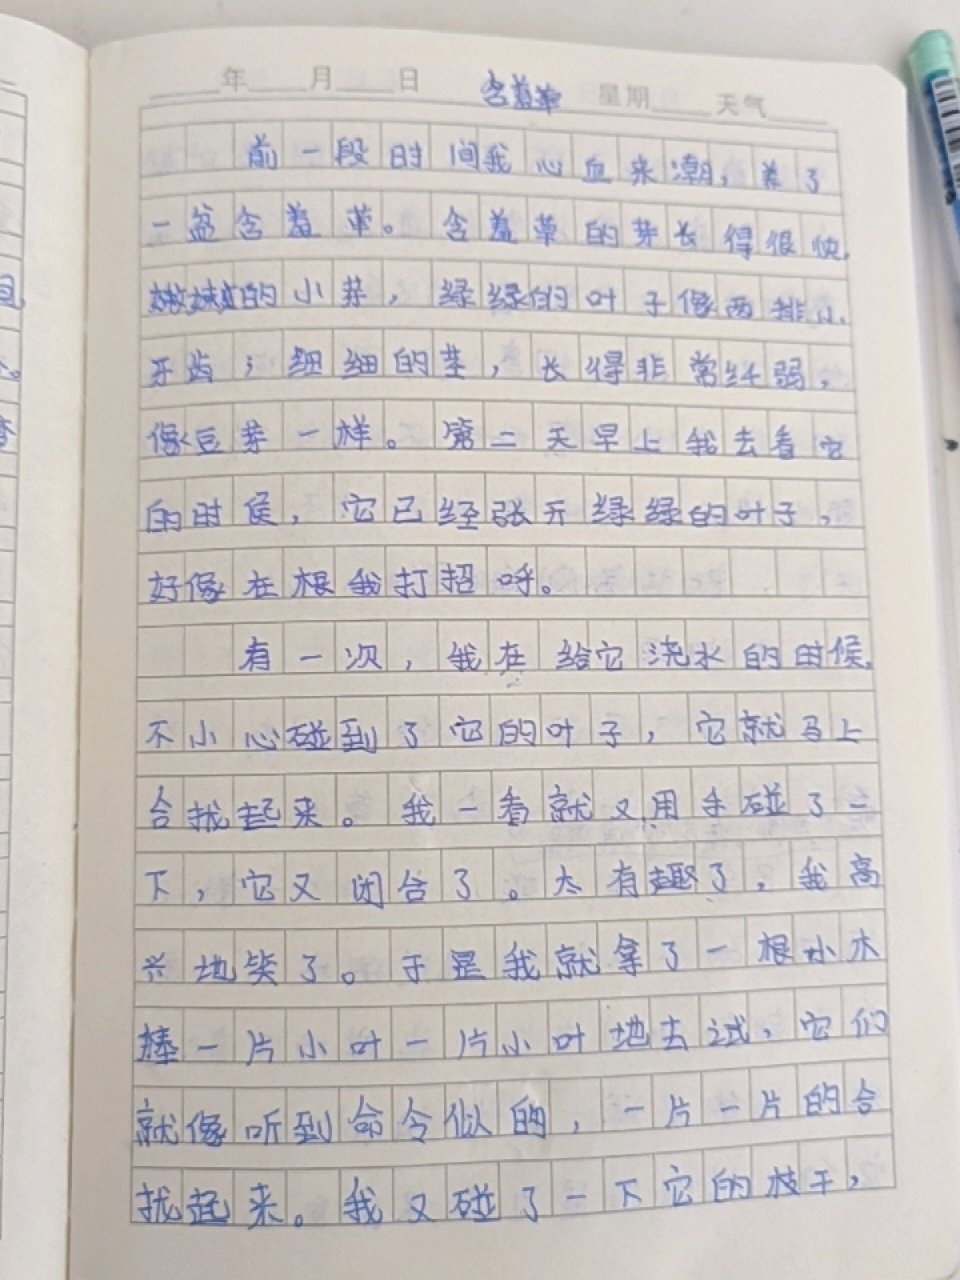 年 月 日 含羞草 星期 天气
前一段时间我心血来潮，养了
一盆含羞草。含羞草的芽长得很快，
嫩嫩的小芽，绿绿的叶子像两排小
牙齿；细细的茎，长得非常纤弱，
像豆芽一样。第二天早上我去看它
的时候，它已经张开绿绿的叶子，
好像在根我打招呼。
有一次，我在给它浇水的时候，
不小心碰到了它的叶子，它就马上
合拢起来。我一看就又用手碰了一
下，它又闭合了。太有趣了，我高
兴地笑了。于是我就拿了一根小木
棒一片小叶一片小叶地去试，它们
就像听到命令似的，一片一片的合
拢起来。我又碰了一下它的枝干，